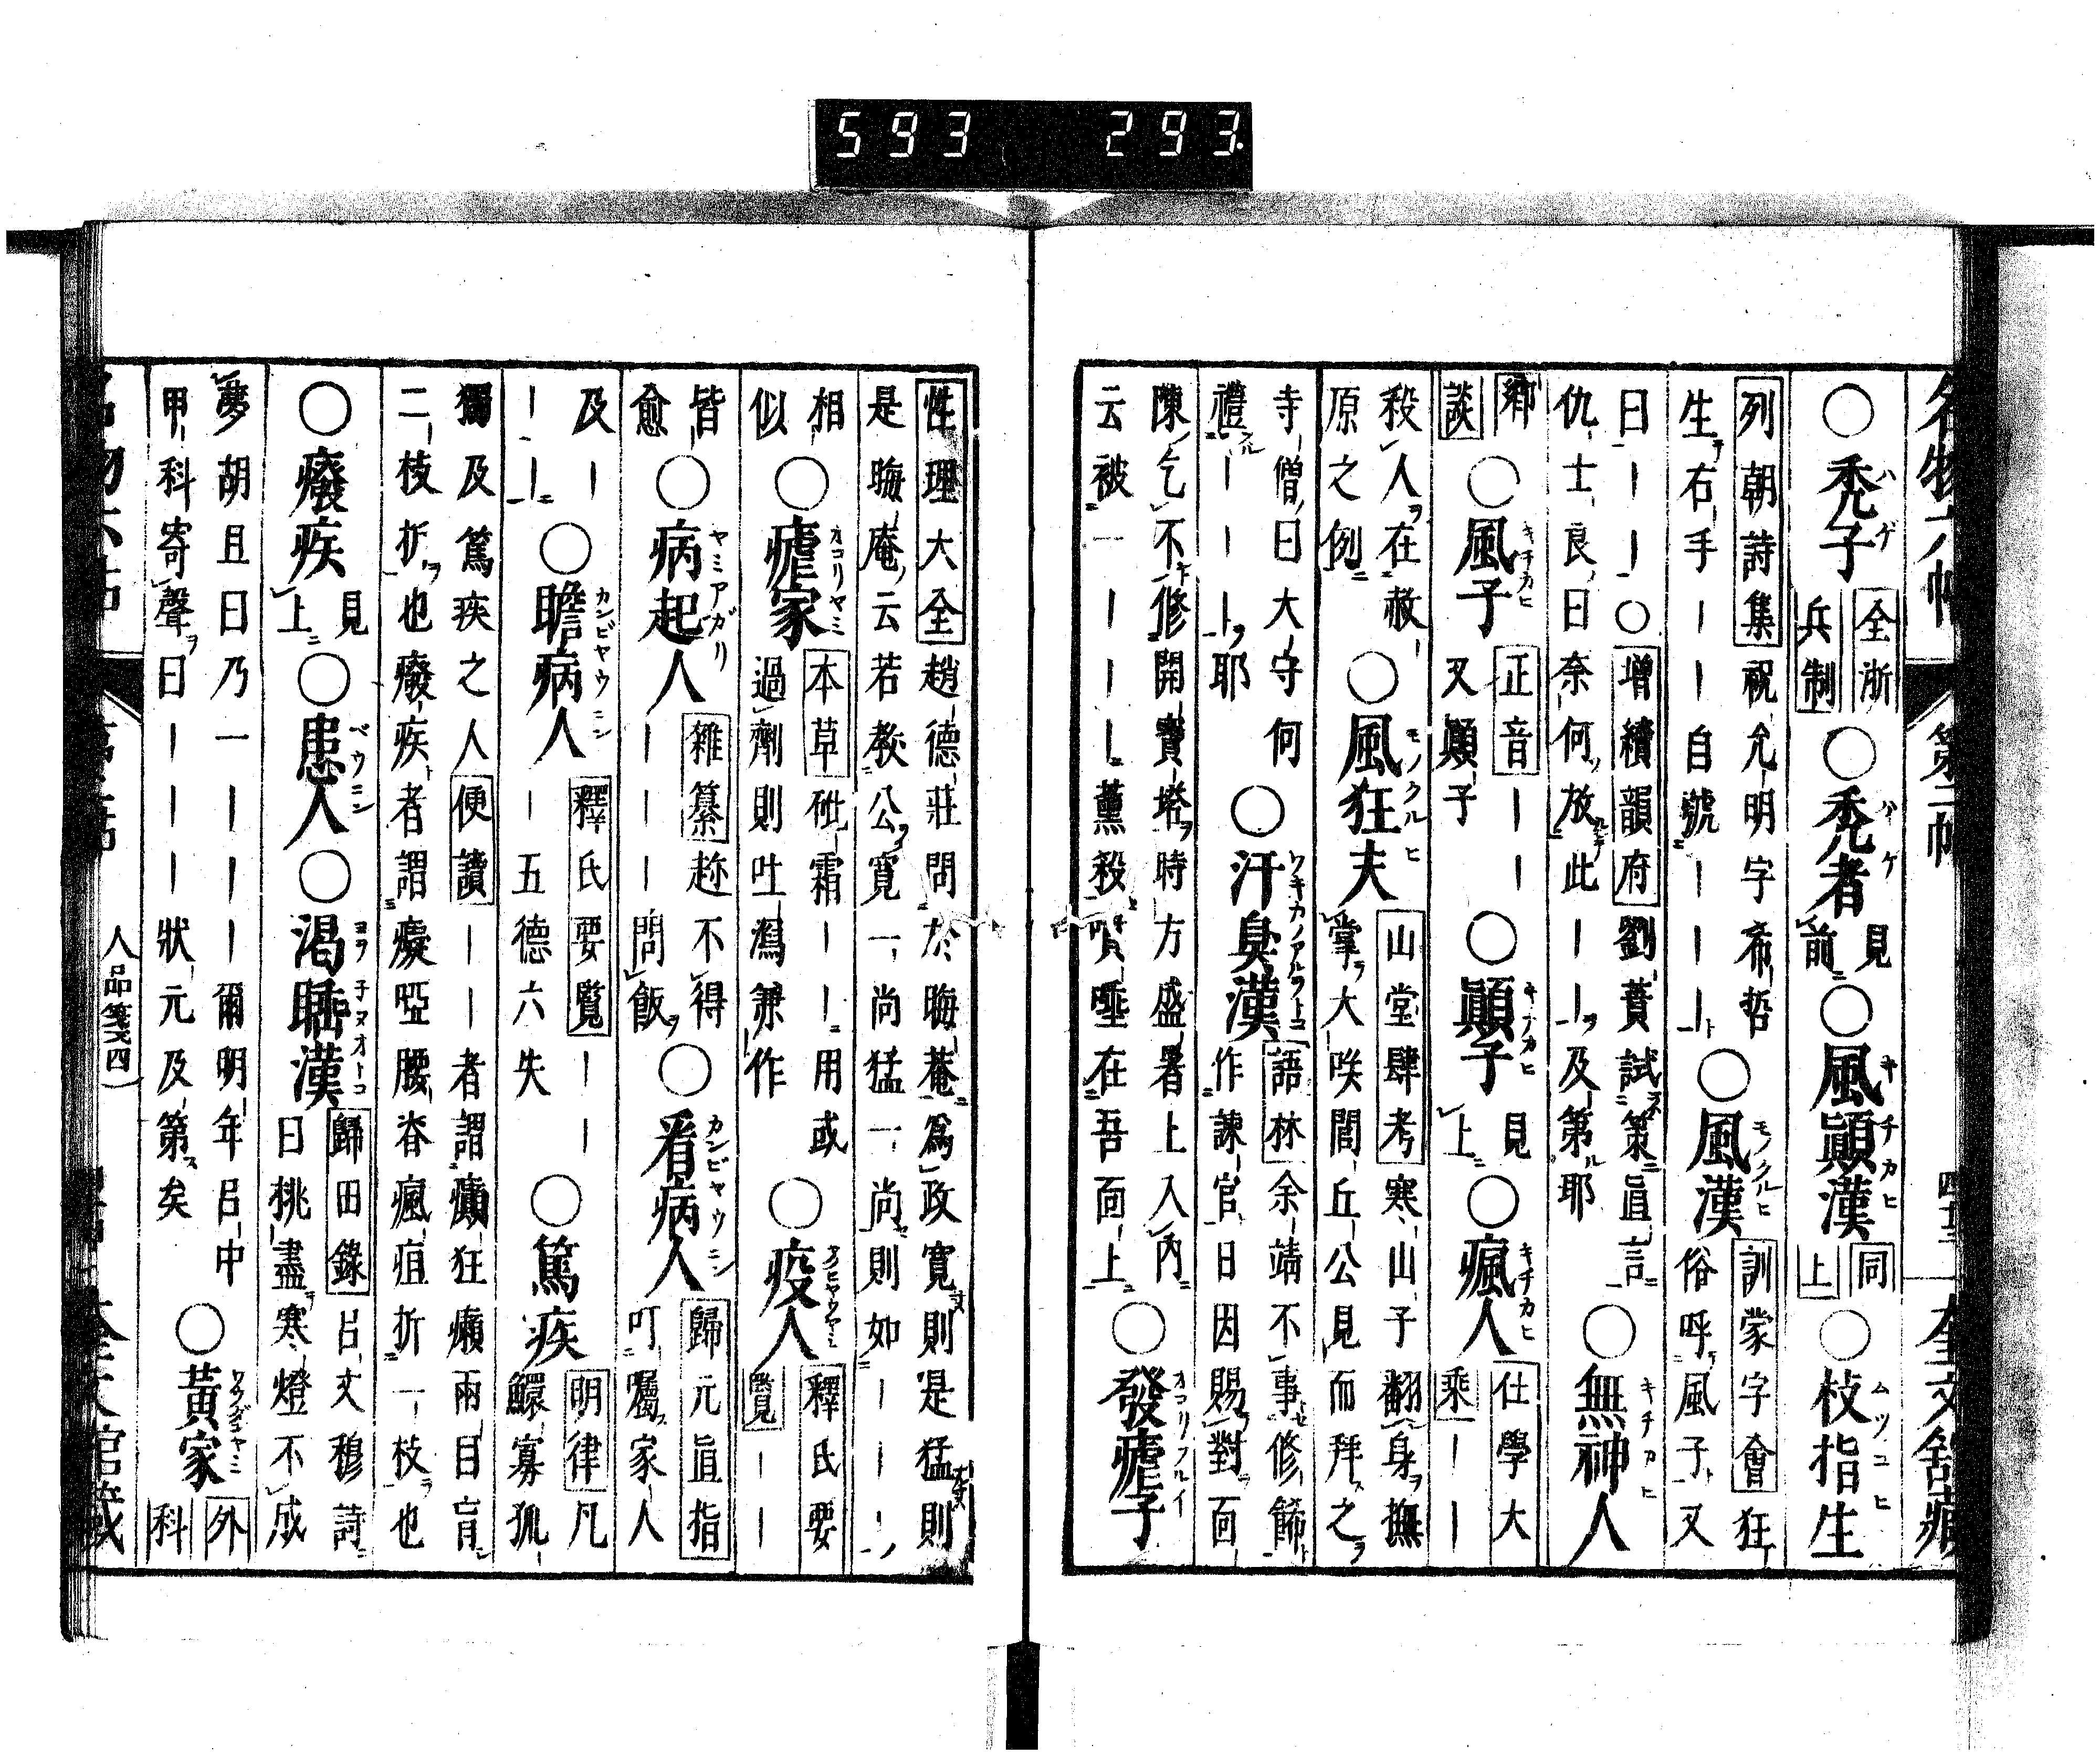 593 293.
名物六帖 第二帖 四十三 奎文舘藏
○禿子 ハゲ 全浙兵制 ○禿者 ハゲ 見前 ○風顚漢 キチカヒ 同上 ○枝指生 ムツユヒ
列朝詩集 祝允明字希哲
生右手｜｜自號｜｜｜ ○風漢 モノクルヒ 訓蒙字會 狂
俗呼風子又
曰｜｜｜○增續韻府 劉蕡試策直言
仇士良曰奈何放此｜｜及第耶 ○無神人 キチカヒ
鄕談 ○風子 キチカヒ 正音｜｜又顚子 ○顚子 キチカヒ 見上 ○瘋人 キチカヒ 仕學大乘｜｜
殺人在赦
原之例 ○風狂夫 モノクルヒ 山堂肆考 寒山子翻身撫
掌大咲閭丘公見而拜之
寺僧曰大守何
禮｜｜｜耶 ○汗臭漢 ワキカノアルヲトコ 語林 余靖不事修飾
作諫官日因賜對面
陳乞不修開寶塔時方盛暑上入內
云被一｜｜｜薰殺噴唾在吾面上 ○發瘧子 オコリフルイ
性理大全 趙德莊問於晦菴爲政寬則是猛則
是晦庵云若敎公寬一尚猛一尚則如｜｜｜
相
似 ○瘧家 オコリヤミ 本草 砒霜｜｜用或
過劑則吐瀉兼作 ○疫人 釋氏要覽｜｜
皆
愈 ○病起人 ヤミアガリ 雜纂 趂不得
｜｜｜問飯 ○看病人 カンビヤウニン 歸元直指
叮囑家人
及｜
｜｜ ○瞻病人 カンビヤウニン 釋氏要覽｜｜
｜五德六失 ○篤疾 明律 凡
鰥寡孤
獨及篤疾之人 便讀｜｜者謂癲狂癩兩目盲
二枝折也癈疾者謂癡啞腰脊瘋疽折一枝也
○癈疾 見上 ○患人 ベウニン ○渴睡漢 ヨヲ子ヌオトコ 歸田錄 呂文穆詩
曰挑盡寒燈不成
夢胡旦曰乃一｜｜｜爾明年呂中
甲科寄聲曰｜｜｜狀元及第矣 ○黃家 ワウダンヤミ 外科
名物六帖 人品箋四